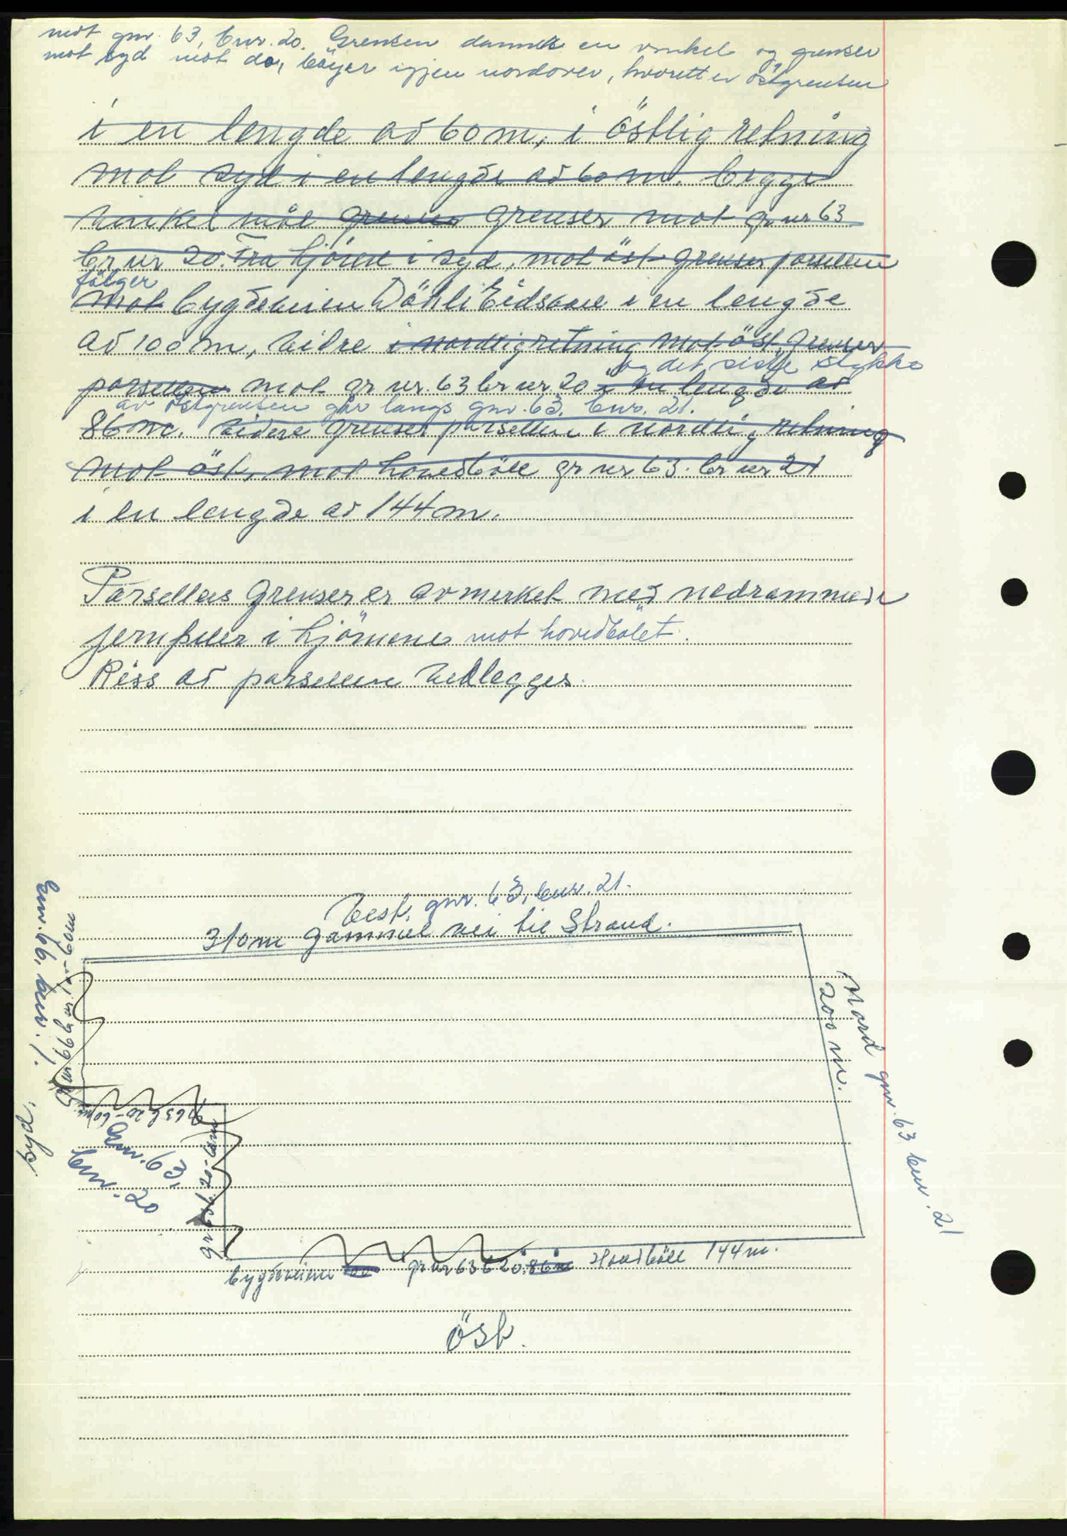 mot gnr. 63, bnr. 20. Grensen danner en vinkel og grenser
mot syd mot do, bøyer igjen nordover, hvoretter östgrensen
i en lengde av 60 m, i östlig retning
mot syd i en lengde av 60 m. begge
vinkel mål grenser grenser mot gr nr 63
br nr 20. Fra hjörne i syd, mot öst grenser parsellen
følger
mot bygdeveien Döhli Eidsaae i en lengde
av 100 m, vidre i nordlig retning mot öst grenser
og det siste stykke
parsellen mot gr nr. 63 br nr 20 i en lengde av
av östgrensen går langs gnr. 63, bnr. 21.
86 m. videre grenser parsellen i nordlig retning
mot öst, mot hovedböle gr nr 63. br nr 21
i en lengde av 144 m.
Parsellens grenser er avmerket med nedrammede
jernpeler i hjörnene mot hovedbölet.
Riss av parsellen vedlegges.
Vest. gnr. 63, bnr. 21.
310 m gammel vei til Strand.
Nord gnr. 63 bnr. 21
200 m.
bnr. 1.
60 m
syd.
63 b 20 - 60 m
Gnr. 63,
bnr. 20
gr 63 b. 20 - 60 m
bygdeveien 100 gr nr 63 b 20. 86 m Hovedböle 144 m.
öst.